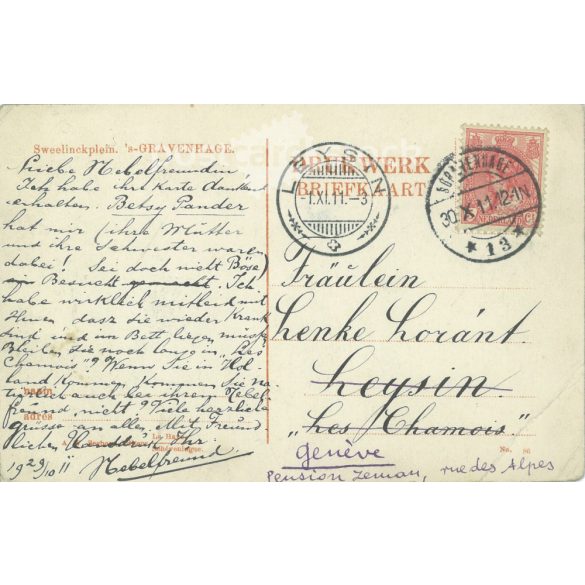 Sweelinckplein. 's-GRAVENHAGE.
Liebe Nebelfreundin
Ich habe ihre Karte dankend
erhalten. Betsy Pander
hat mir (ihre Mutter
und ihre Schwester waren
dabei! Sei doch nicht Böse)
ein Besuch gemacht. Ich
habe wirklich mitleid mit
Ihnen dasz sie wieder krank
sind und im Bett liegen
Bleiben Sie noch lange in „Les
Chamois"? Wenn Sie in Hol-
land kommen, kommen Sie na-
auch bei ihren Nebel-
freund, nicht? Viele herzliche
grüsse an allen. Mit Freund-
lichen Ihr.
Nebelfreund.
1929/10 11
naam
adres
La Haye
BRIEFKAART
LEYSIN
-1.XI.11.-3
'S GRAVENHAGE
30.X.11.12-1N
* 13 *
Fräulein
Henke Loránt
Leysin
„Les Chamois"
Genève
Pension Zeman, rue des Alpes
No. 86